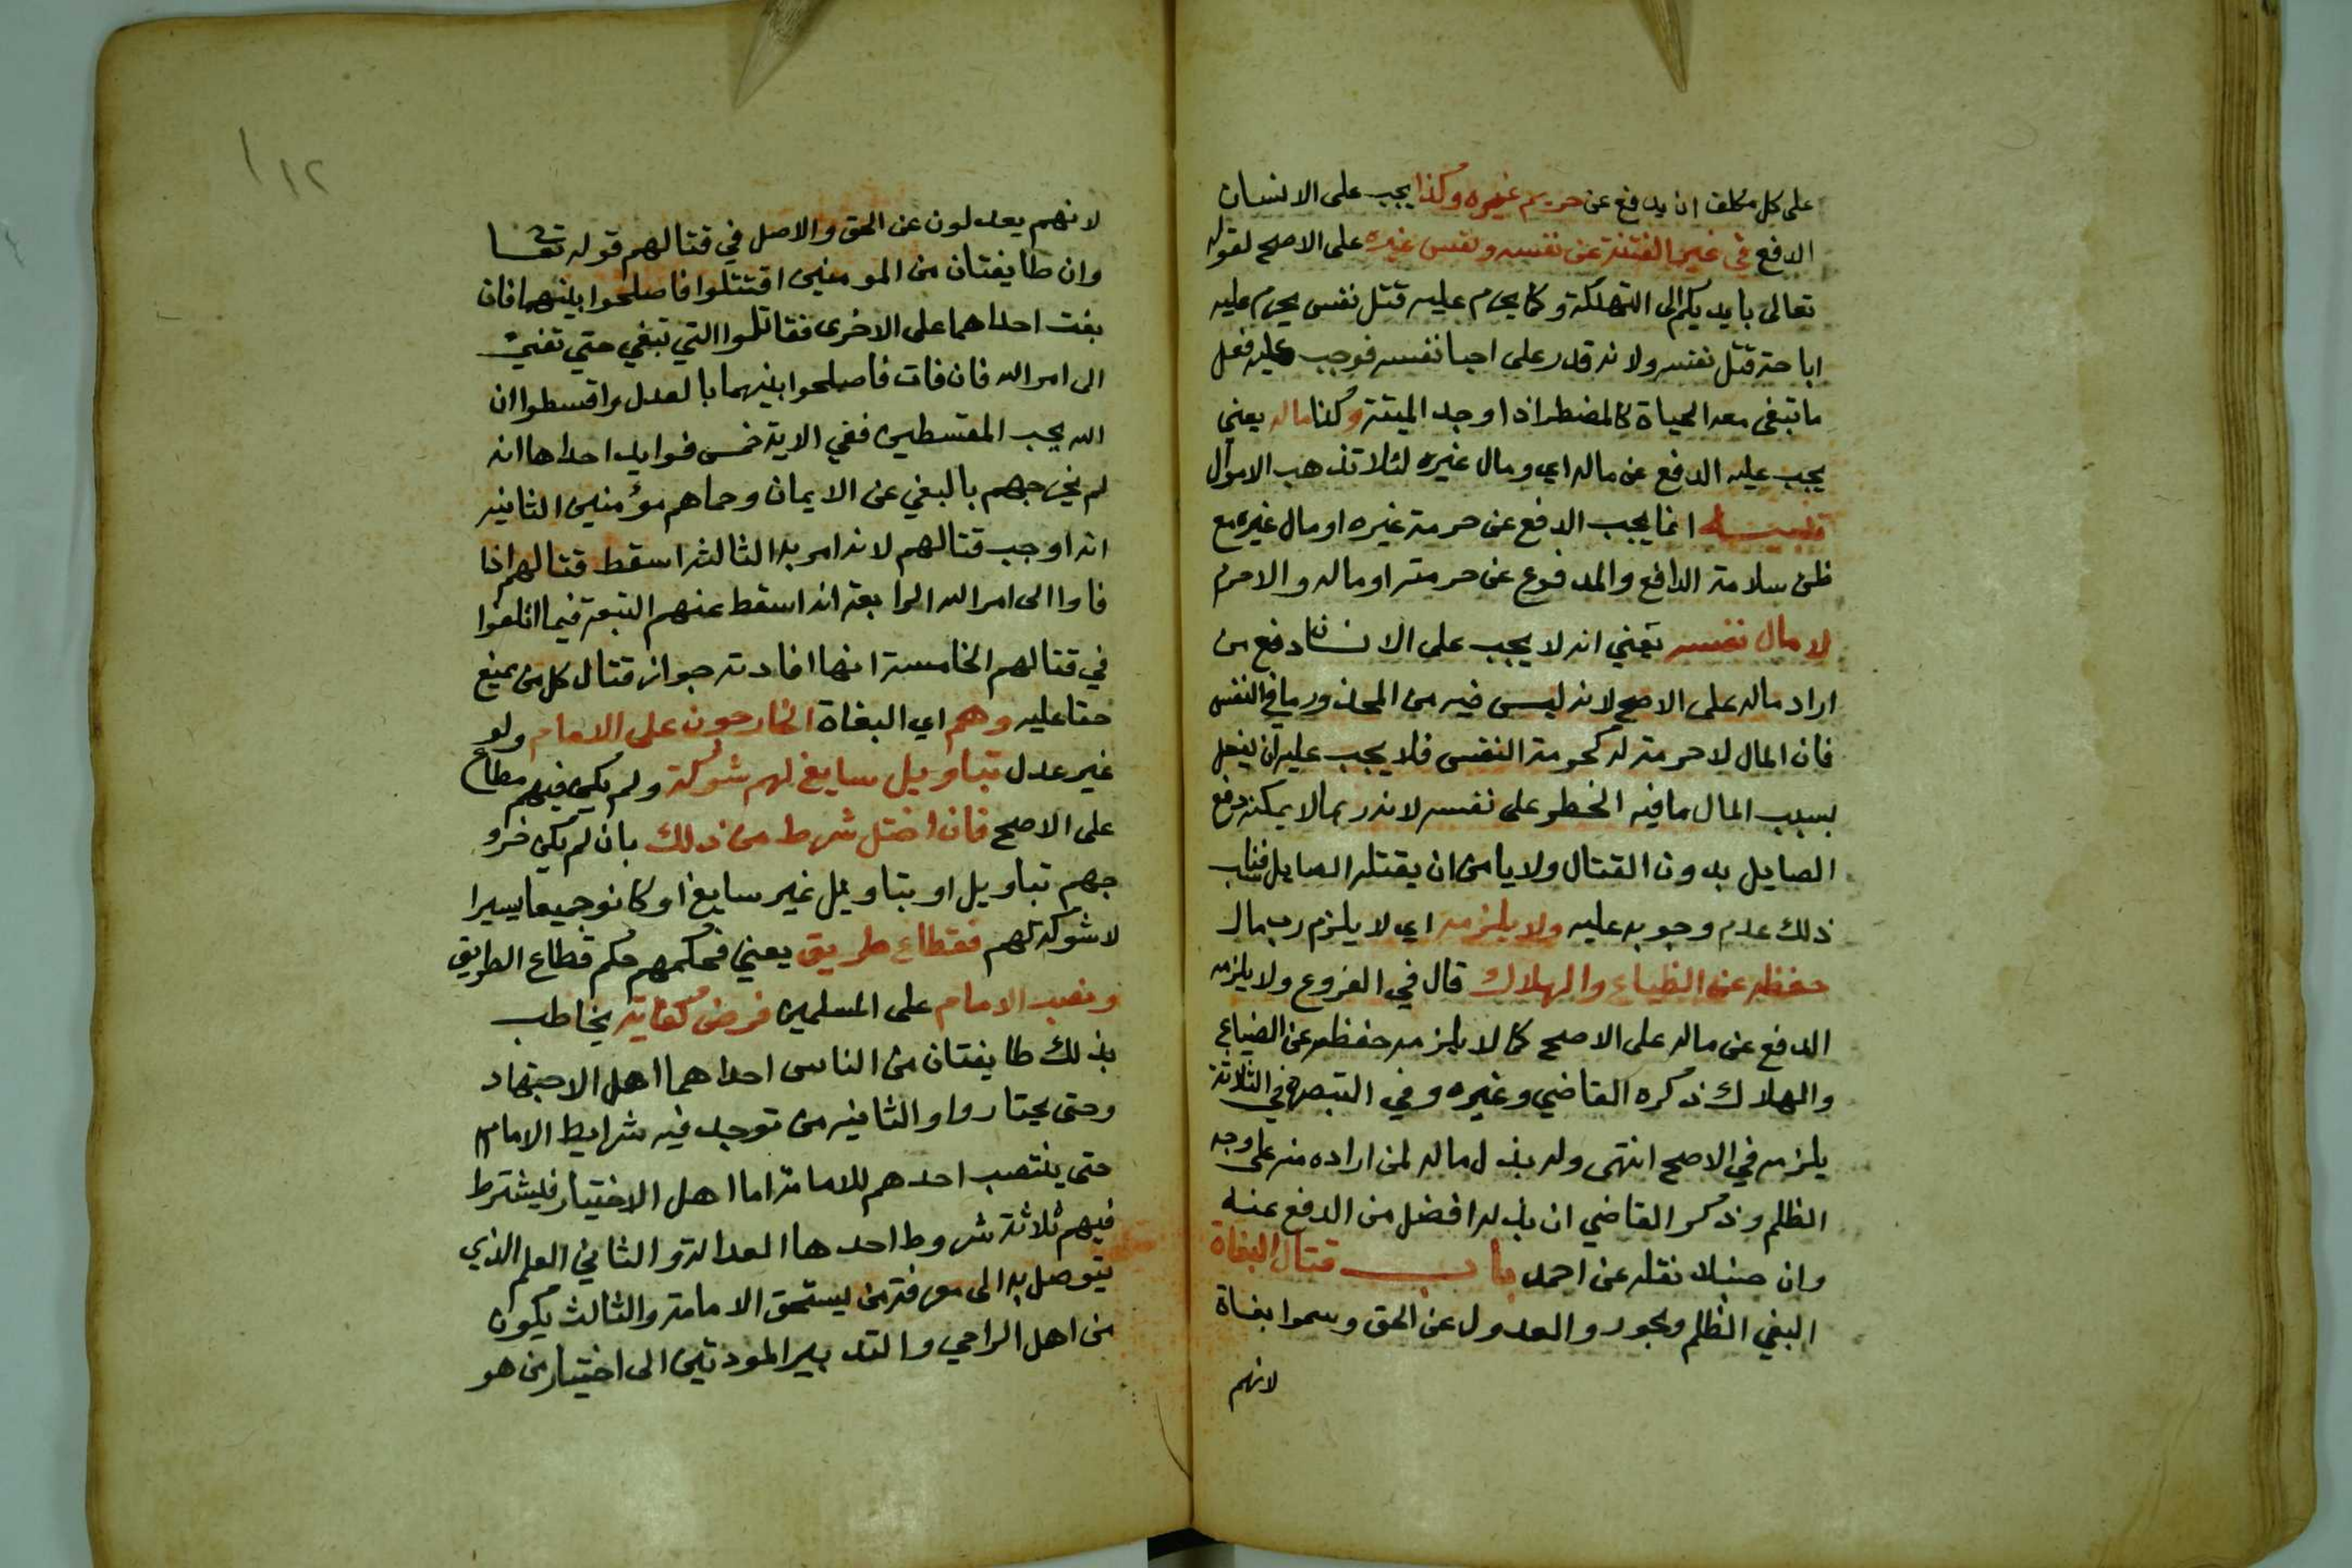 على كل مكلف ان يدفع عن حريم غيره وكذا يجب على الانسان
الدفع في غير الفتنة عن نفسه ونفس غيره على الاصح لقوله
تعالى بايديكم الى التهلكة وكما يحرم عليه قتل نفس يحرم عليه
اباحة قتل نفسه ولانه قدر على احيا نفسه فوجب عليه فعل
ما تبقى معه الحياة كالمضطر اذا وجد الميتة وكذا ماله يعني
يجب عليه الدفع عن ماله اي ومال غيره لئلا تذهب الاموال
تنبيه انما يجب الدفع عن حرمة غيره او مال غيره مع
ظن سلامة الدافع والمدفوع عن حرمته او ماله والا حرم
لا مال نفسه يعني انه لا يجب على الانسان دفع من
اراد ماله على الاصح لانه ليس فيه من المحذور ما في النفس
فان المال لا حرمة له كحرمة النفس فلا يجب عليه ان يفعل
بسبب المال ما فيه الخطر على نفسه لانه ربما لا يمكنه دفع
الصايل بدون القتال ولا يامن ان يقتله الصايل فناسب
ذلك عدم وجوبه عليه ولا يلزمه اي لا يلزم رب مال
حفظه عن الضياع والهلاك قال في الفروع ولا يلزمه
الدفع عن ماله على الاصح كما لا يلزمه حفظه عن الضياع
والهلاك ذكره القاضي وغيره وفي التبصرة في الثلاثة
يلزمه في الاصح انتهى وله بذل ماله لمن اراده منه على وجه
الظلم وذكر القاضي ان بذله افضل من الدفع عنه
وان حنبلا نقله عن احمد باب قتال البغاة
البغي الظلم وبجور والعدول عن الحق وسموا بغاة
لانهم
١١٢
لانهم يعدلون عن الحق والاصل في قتالهم قوله تعا
وان طايفتان من المومنين اقتتلوا فاصلحوا بينهما فان
بغت احداهما على الاخرى فقاتلوا التي تبغي حتى تفيئ
الى امر الله فان فات فاصلحوا بينهما بالعدل واقسطوا ان
الله يحب المقسطين ففي الاية خمس فوايد احداها انه
لم يخرجهم بالبغي عن الايمان وحماهم مؤمنين الثانيه
انه اوجب قتالهم لانه امر به الثالثه اسقط قتالهم اذا
فاوا الى امر الله الرابعة انه اسقط عنهم التبعة فيما اتلفوا
في قتالهم الخامسة انها افادته جواز قتال كل من يمنع
حقا عليه وهم اي البغاة الخارجون على الامام ولو
غير عدل بتاويل سايغ لهم شوكة ولم يكن فيهم مطاع
على الاصح فان اختل شرط من ذلك بان لم يكن خرو
جهم بتاويل او بتاويل غير سايغ او كانو جميعا يسيرا
لا شوكة لهم فقطاع طريق يعني فحكمهم حكم قطاع الطريق
ونصب الامام على المسلمين فرض كفاية يخاطب
بذلك طايفتان من الناس احداهما اهل الاجتهاد
وحتى يختاروا والثانيه من توجد فيه شرايط الامام
حتى ينتصب احدهم للامامة اما اهل الاختيار فيشترط
فيهم ثلاثة شروط احدها العدالة والثاني العلم الذي
يتوصل به الى معرفة من يستحق الامامة والثالث يكون
من اهل الراي والتدبير المودتين الى اختيار من هو